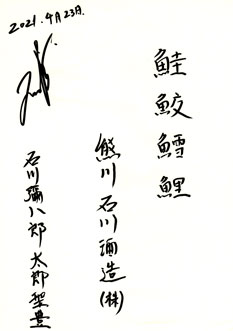 2021.4月23日.
鮭鮫鱈鯉
熊川 石川酒造(株)
石川彌八郎太郎聖豊